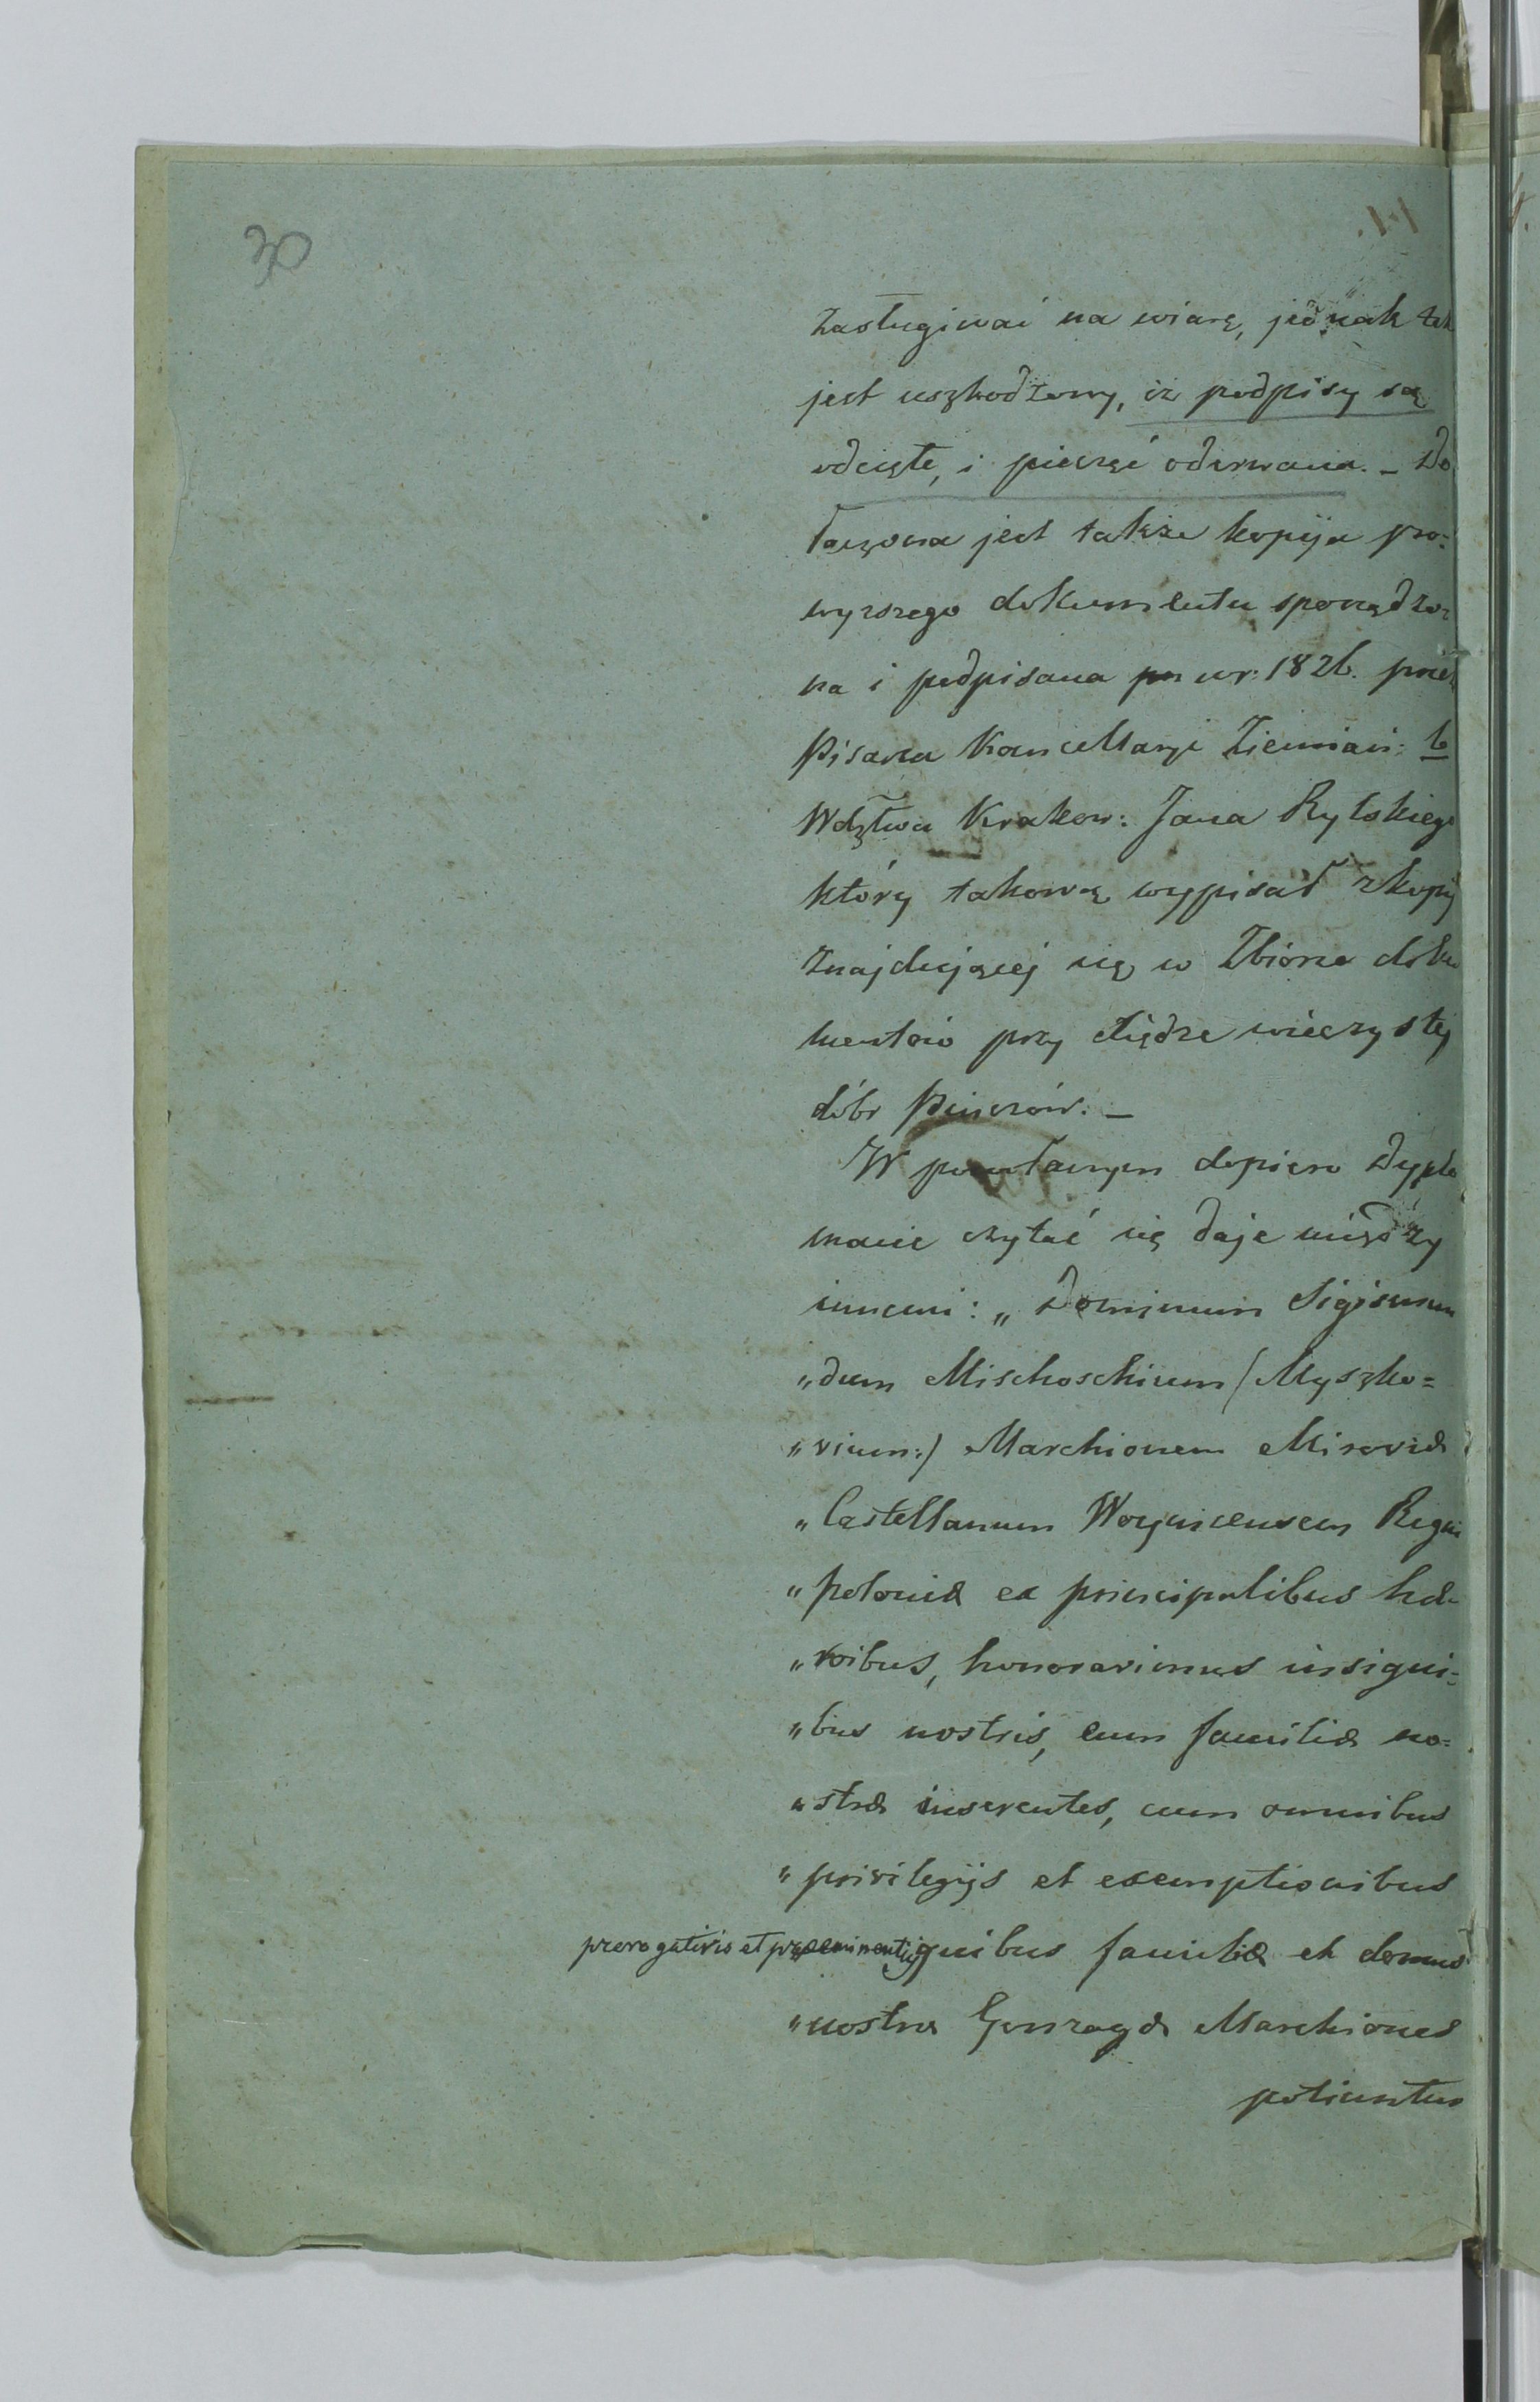 30
zasługiwać na wiarę, jednak tak
jest uszkodzony, iż podpisy są
odcięte, i pieczęć oderwana. – Do
łączona jest także kopija po=
wyższego dokumentu sporządzo=
na i podpisana w r: 1826. przez
Pisarza Kancellaryi Ziemiań: b
Wdztwa Krakow: Jana Rylskiego
który takową wypisał z kopij
znajdującéj się w Zbiorze doku
mentów przy Księdze wieczystéj
dóbr Pinczów. –
W powołanym dopiero Dyplo
macie czytać się daje między
innemi: „ Dominum Sigismun
„dum Mischoschium (Myszko=
„vium:) Marchionem Miroviæ
„Castellanum Woynicensem Regni
„Poloniæ ex principalibus hæ=
„roibus, honoravimus insigni=
„bus nostris, eum familiæ no=
„stræ inserentes, cum omnibus
„privilegijs et exemptionibus
prerogativis et præeminentijs quibus familiæ et domus
„nostræ Gonzagæ Marchiones
potiuntur